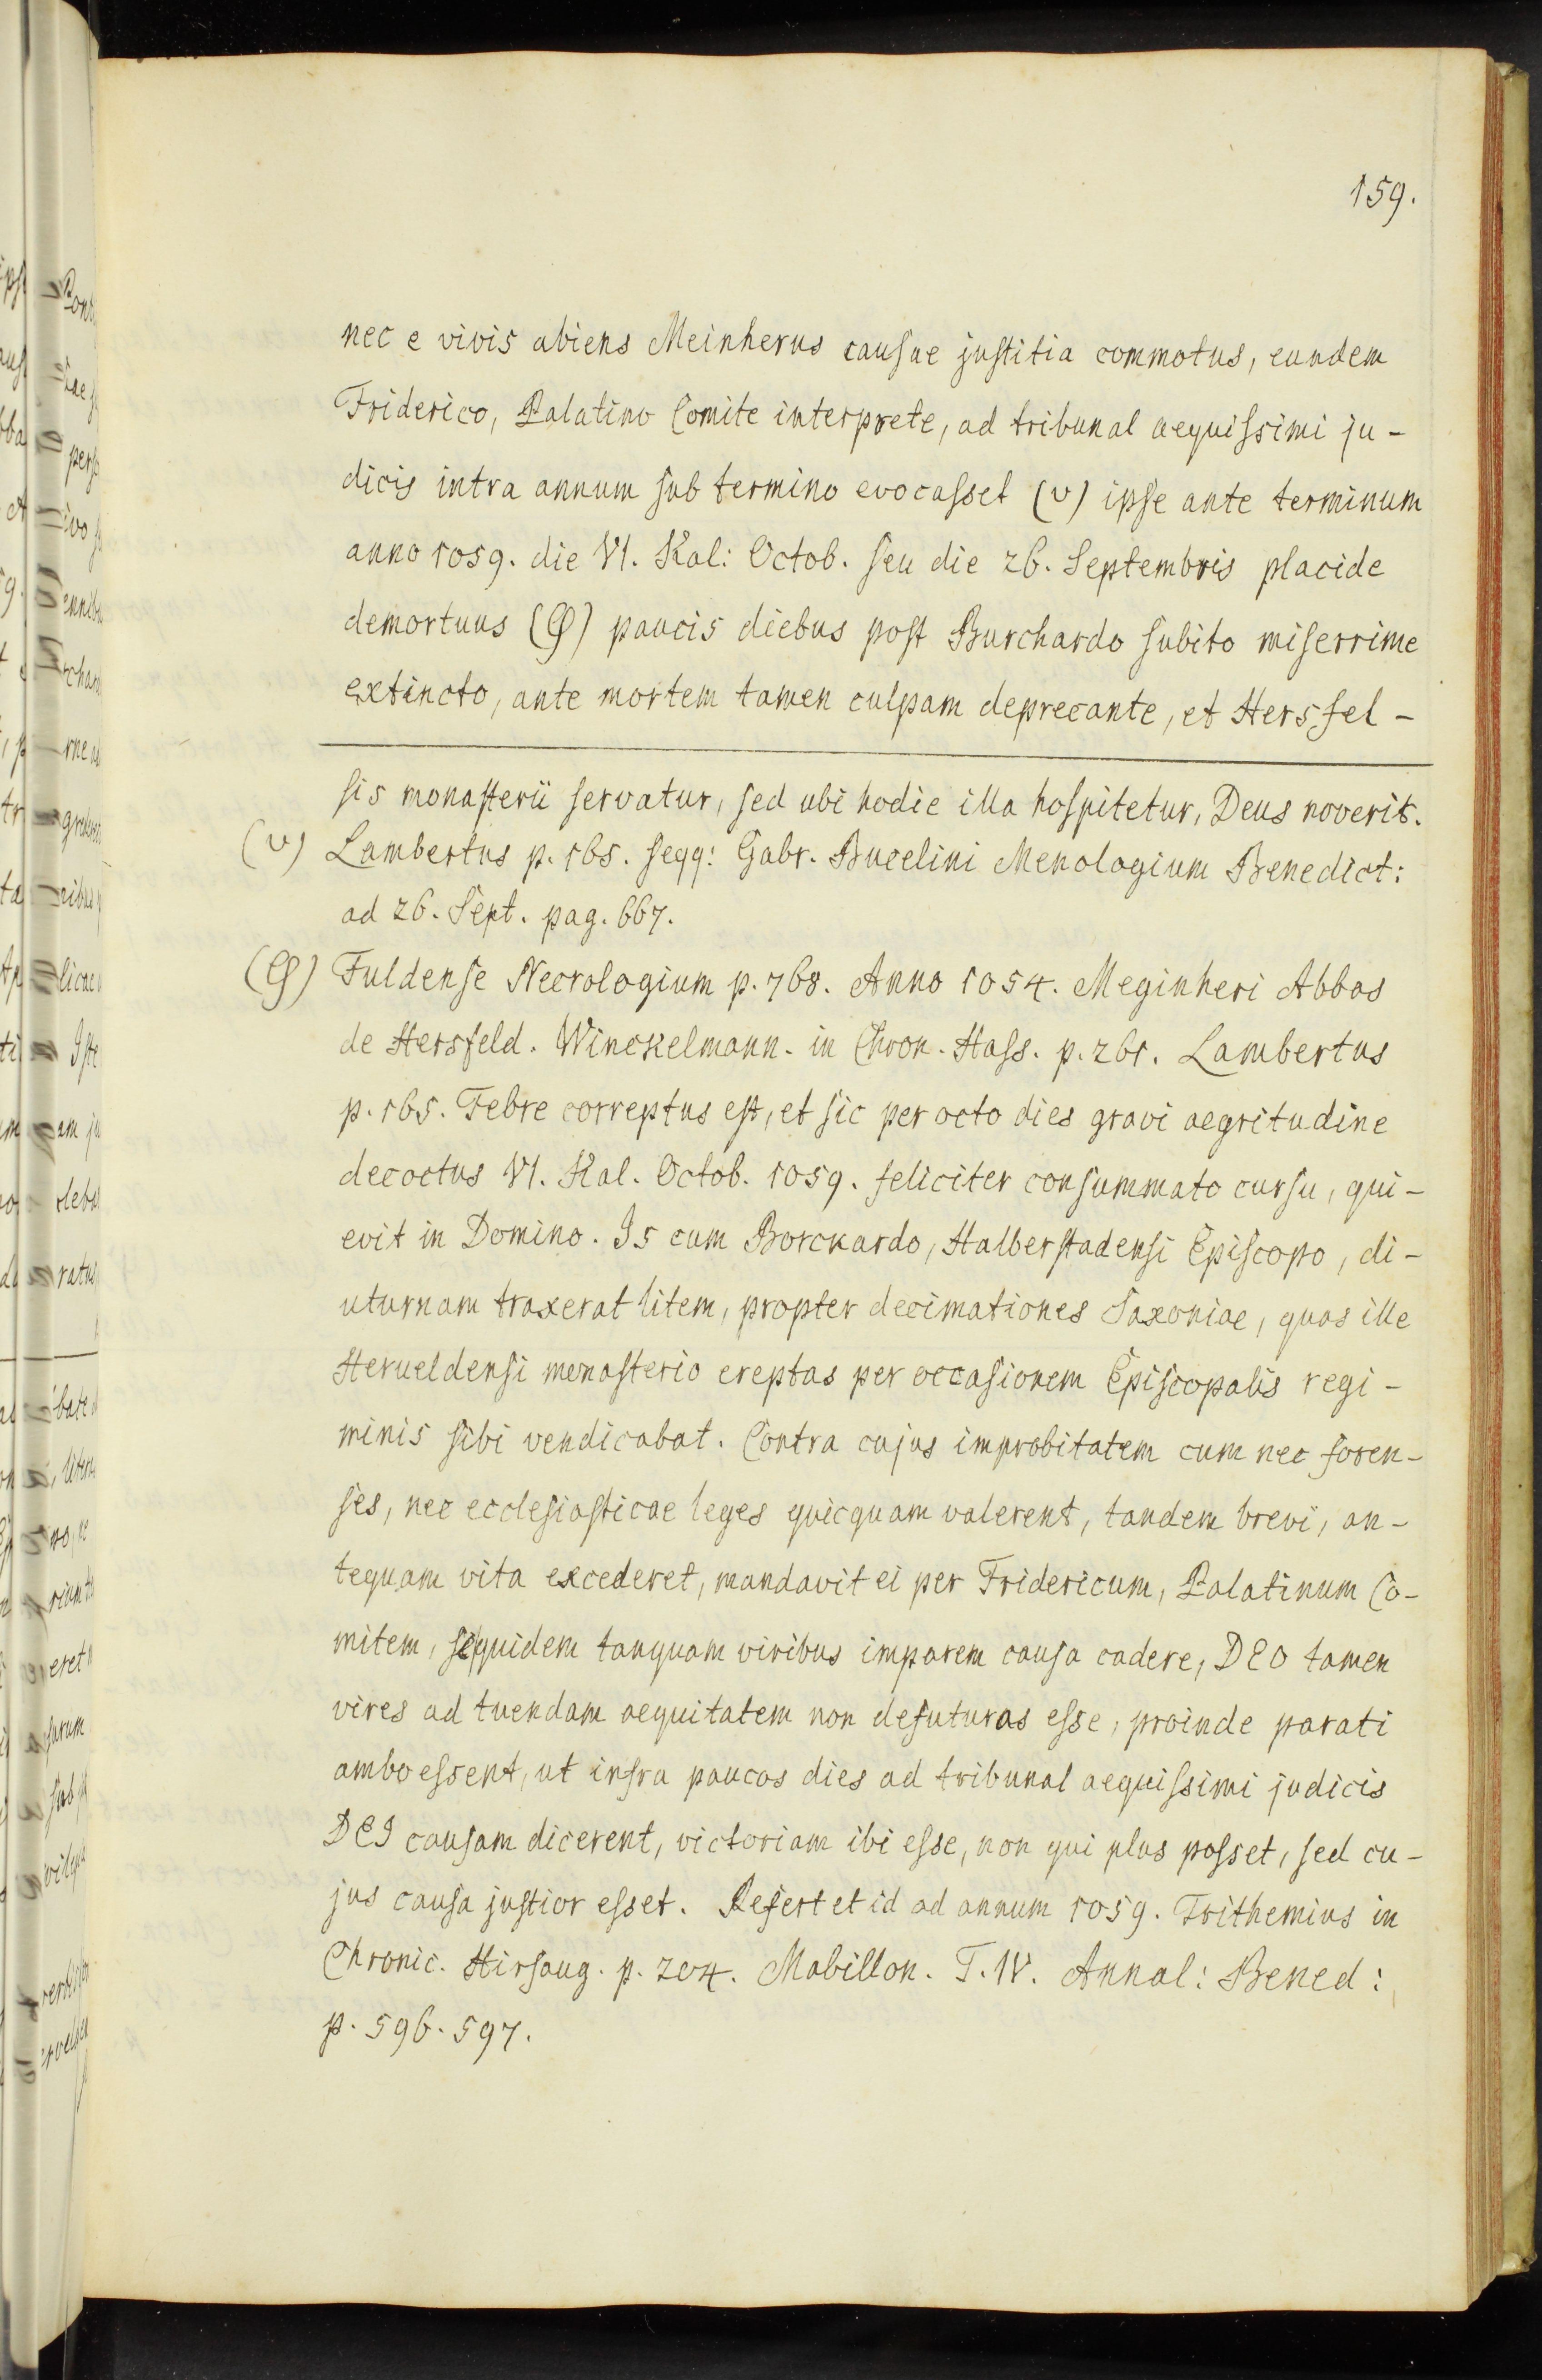 159.
nec e vivis abiens Meinherus causae justitia commotus, eundem
Friderico, Palatino Comite interprete, ad tribunal aequissimi ju-
dicis intra annum sub termino evocasset (v) ipse ante terminum
anno 1059. die VI. Kal: Octob. seu die 26. Septembris placide
demortuus (φ) paucis diebus post Burchardo subito miserrime
extincto, ante mortem tamen culpam deprecante, et Hersfel-
sis monasterii servatur, sed ubi hodie illa hospitetur, Deus noverit.
(v) Lambertus p. 165. seqq: Gabr. Bucelini Menologium Benedict:
ad 26. Sept. pag. 667.
(φ) Fuldense Necrologium p. 768. Anno 1054. Meginheri Abbas
de Hersfeld. Winckelmann. in Chron. Hass. p. 261. Lambertus
p. 165. Febre correptus est, et sic per octo dies gravi aegritudine
decoctus VI. Kal. Octob. 1059. feliciter consummato cursu, qui-
evit in Domino. Is cum Borckardo, Halberstadensi Episcopo, di-
uturnam traxerat litem, propter decimationes Saxoniae, quas ille
Herueldensi monasterio ereptas per occasionem Episcopalis regi-
minis sibi vendicabat. Contra cujus improbitatem cum nec foren-
ses, nec ecclesiasticae leges quicquam valerent, tandem brevi, an-
tequam vita excederet, mandavit ei per Fridericum, Palatinum Co-
mitem, se quidem tanquam viribus imparem causa cadere, DEO tamen
vires ad tuendam aequitatem non defuturas esse, proinde parati
ambo essent, ut infra paucos dies ad tribunal aequissimi judicis
DEI causam dicerent, victoriam ibi esse, non qui plus posset, sed cu-
jus causa justior esset. Refert et id ad annum 1059. Trithemius in
Chronic. Hirsaug. p. 204. Mabillon. T. IV. Annal: Bened:
p. 596. 597.